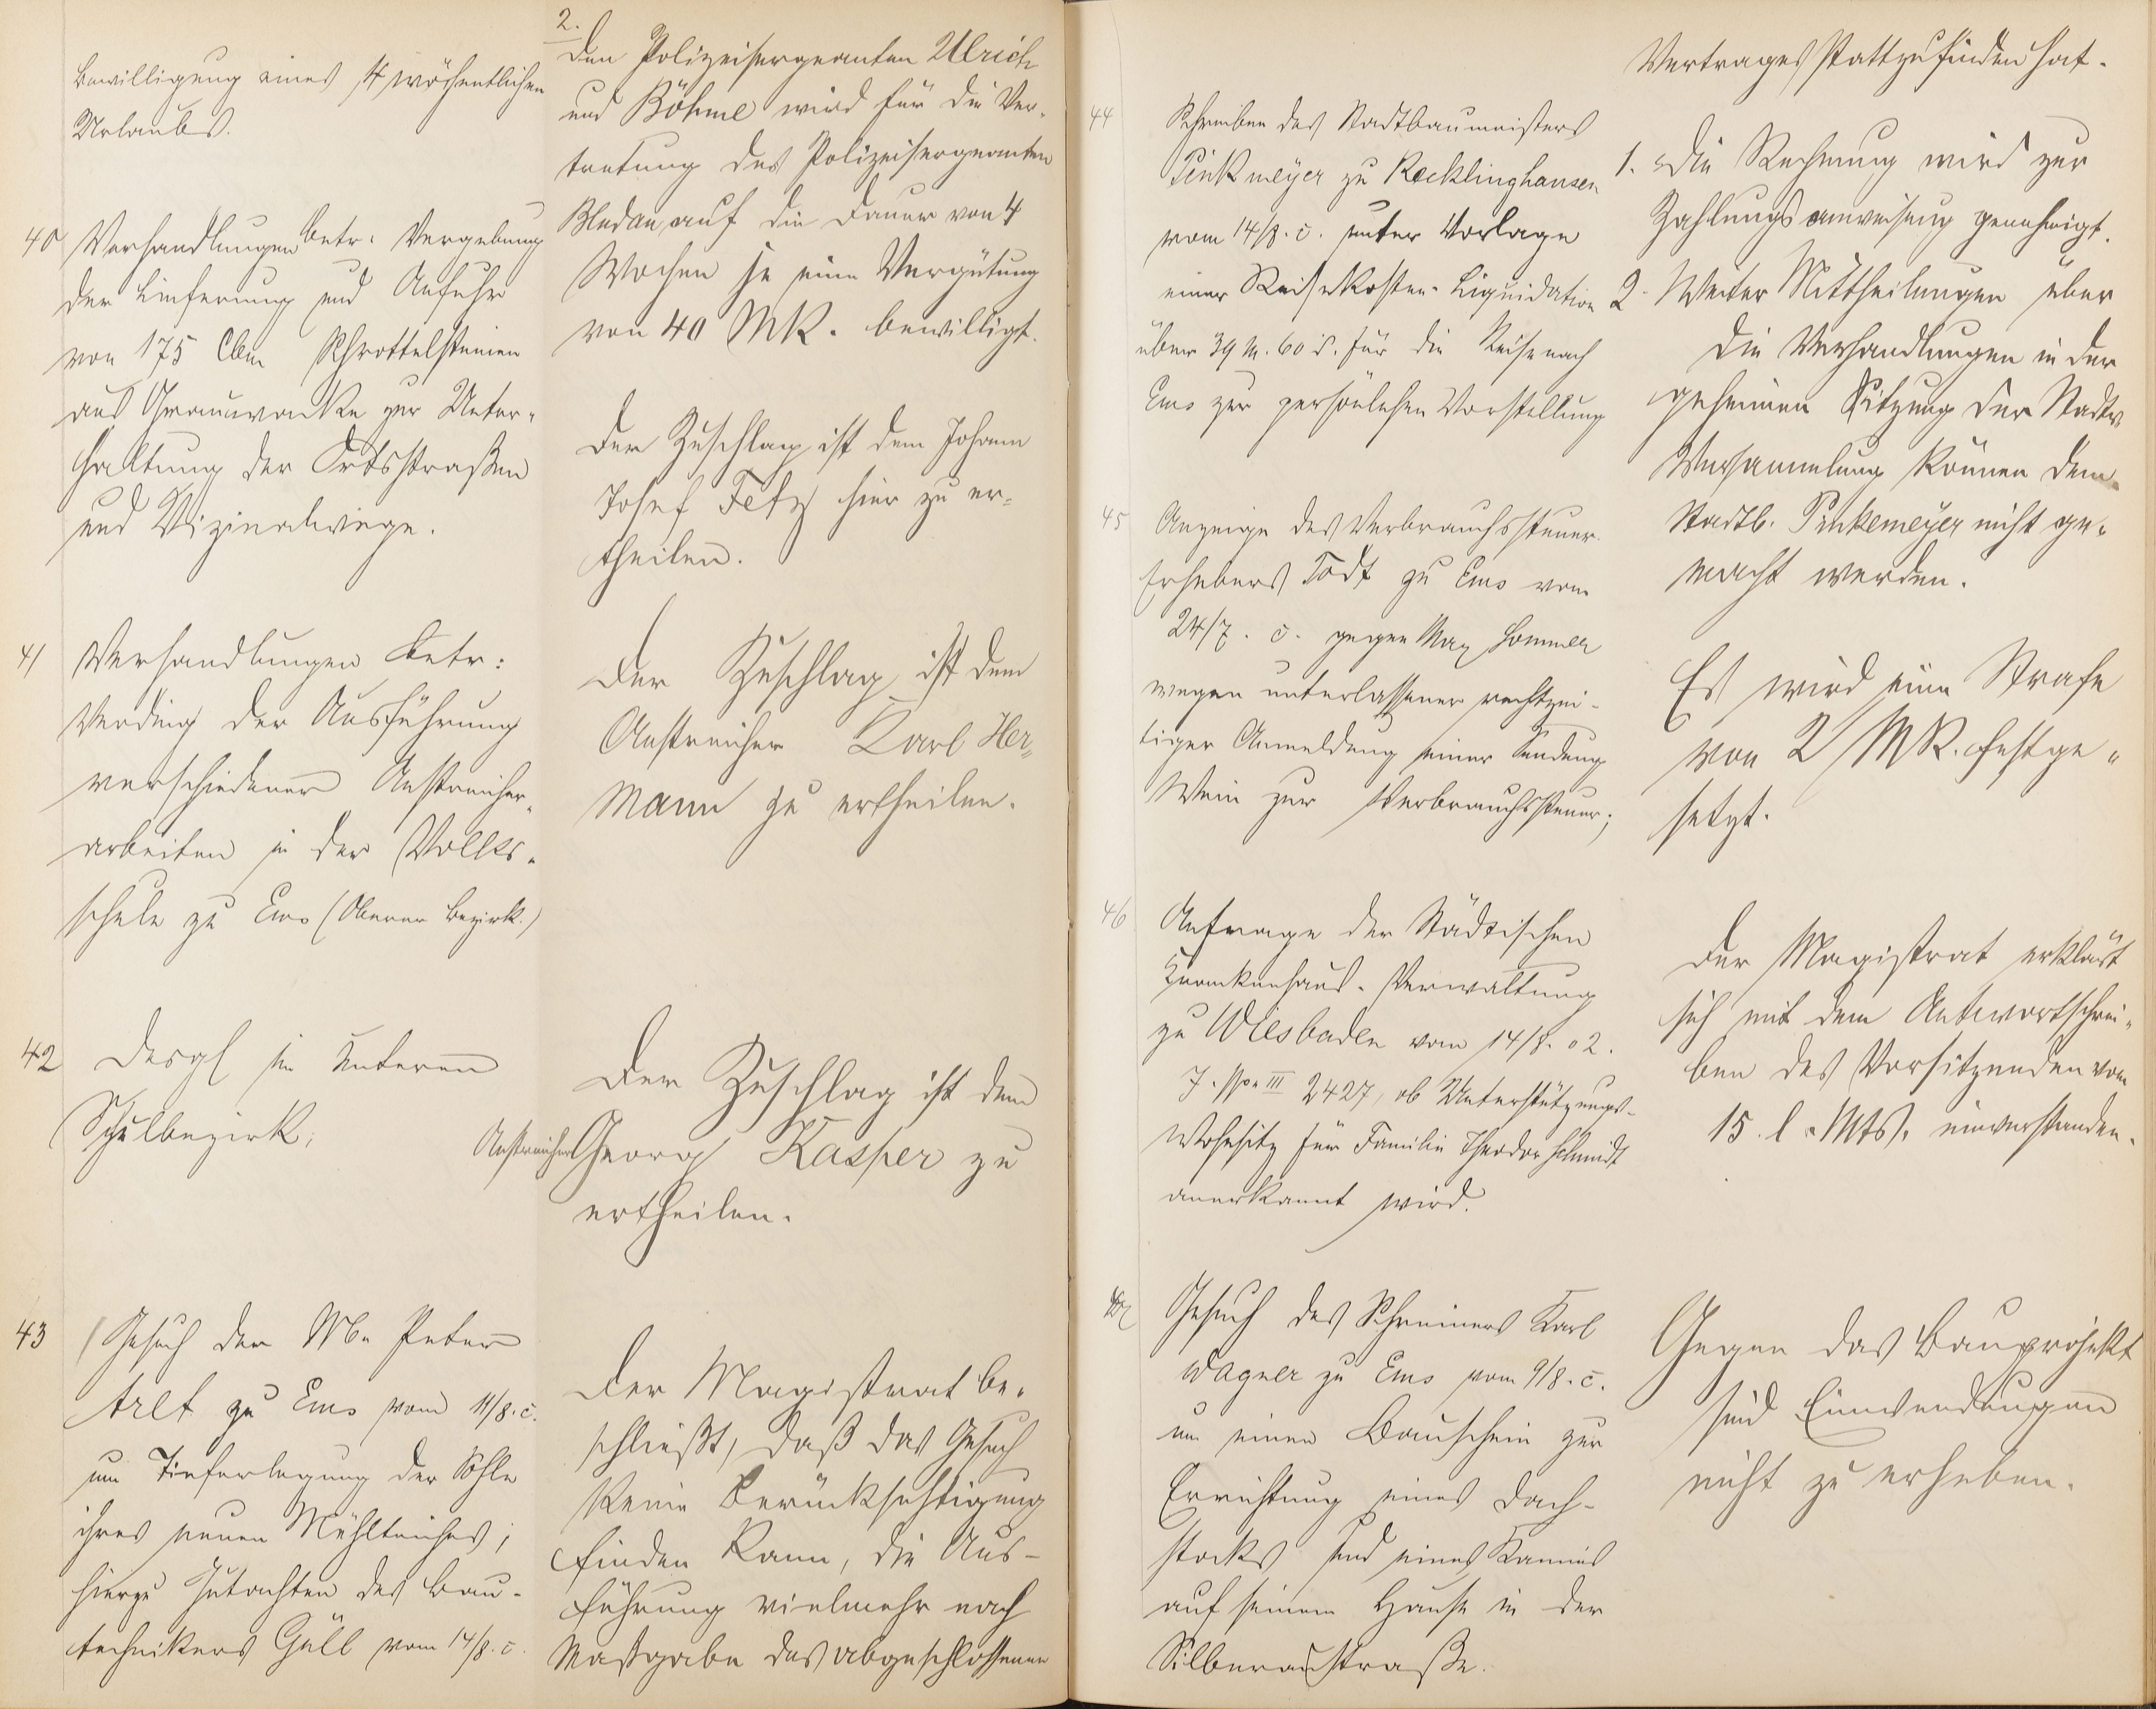 Bewilligung eines 4 wöchentlichen
Urlaubs.
2.
Den Polizeisergeanten Ulrich
und Böhme wird für die Ver-
tretung des Polizeisergeanten
Bledau auf die Dauer von 4
Wochen je eine Vergütung
von 40 MK. bewilligt.
40 Verhandlungen betr. Vergebung
der Lieferung und Anfuhr
von 175 Cbm Schrottelsteinen
aus Grauwacke zur Unter-
haltung der Ortsstraßen
und Vizinalwege.
Der Zuschlag ist dem Johann
Josef Fetz hier zu er-
theilen.
41 Verhandlungen betr:
Verding der Ausführung
verschiedener Anstreicher-
arbeiten in der Volks-
schule zu Ems (Oberer Bezirk.)
Der Zuschlag ist dem
Anstreicher Karl Her-
mann zu ertheilen.
42 Desgl im unteren
Schulbezirk;
Der Zuschlag ist dem
Anstreicher Georg Kasper zu
ertheilen.
43 Gesuch der Ww. Peter
Arlt zu Ems vom 11/8. c.
um Tieferlegung der Sohle
ihres neuen Mühlteiches;
hierzu Gutachten des Bau-
technikers Güll vom 14/8. c.
Der Magistrat be-
schließt, daß das Gesuch
keine Berücksichtigung
finden kann, die Aus-
führung vielmehr nach
Maßgabe des abgeschlossenen
Vertrages stattzufinden hat.
44 Schreiben des Stadtbaumeisters
Pinkemeyer zu Recklinghausen
vom 14/8. c. unter Vorlage
einer Reisekosten-Liquidation
über 39 M. 60 S. für die Reise nach
Ems zur persönlichen Vorstellung
1. Die Rechnung wird zur
Zahlungsanweisung genehmigt.
2. Weiter Mittheilungen über
die Verhandlungen in der
geheimen Sitzung der Stadtv.
Versammlung können dem
Stadtb. Pinkemeyer nicht ge-
macht werden.
45 Anzeige des Verbrauchssteuer-
Erhebers Todt zu Ems vom
24/7. c. gegen Max Sommer
wegen unterlassener rechtzei-
tiger Anmeldung einer Sendung
Wein zur Verbrauchssteuer;
Es wird eine Strafe
von 2 MK. festge-
setzt.
46 Anfrage der Städtischen
Krankenhaus-Verwaltung
zu Wiesbaden vom 14/8. 02.
J. No. III 2427, ob Unterstützungs-
Wohnsitz für Familie Theodor Schmidt
anerkannt wird.
Der Magistrat erklärt
sich mit dem Antwortschrei-
ben des Vorsitzenden vom
15. l. Mts. einverstanden.
Gesuch des Schreiners Karl
Wagner zu Ems vom 9/8. c.
um einen Bauschein zur
Errichtung eines Dach-
stocks und eines Kamins
auf seinem Hause in der
Silberaustraße.
Gegen das Bauprojekt
sind Einwendungen
nicht zu erheben.